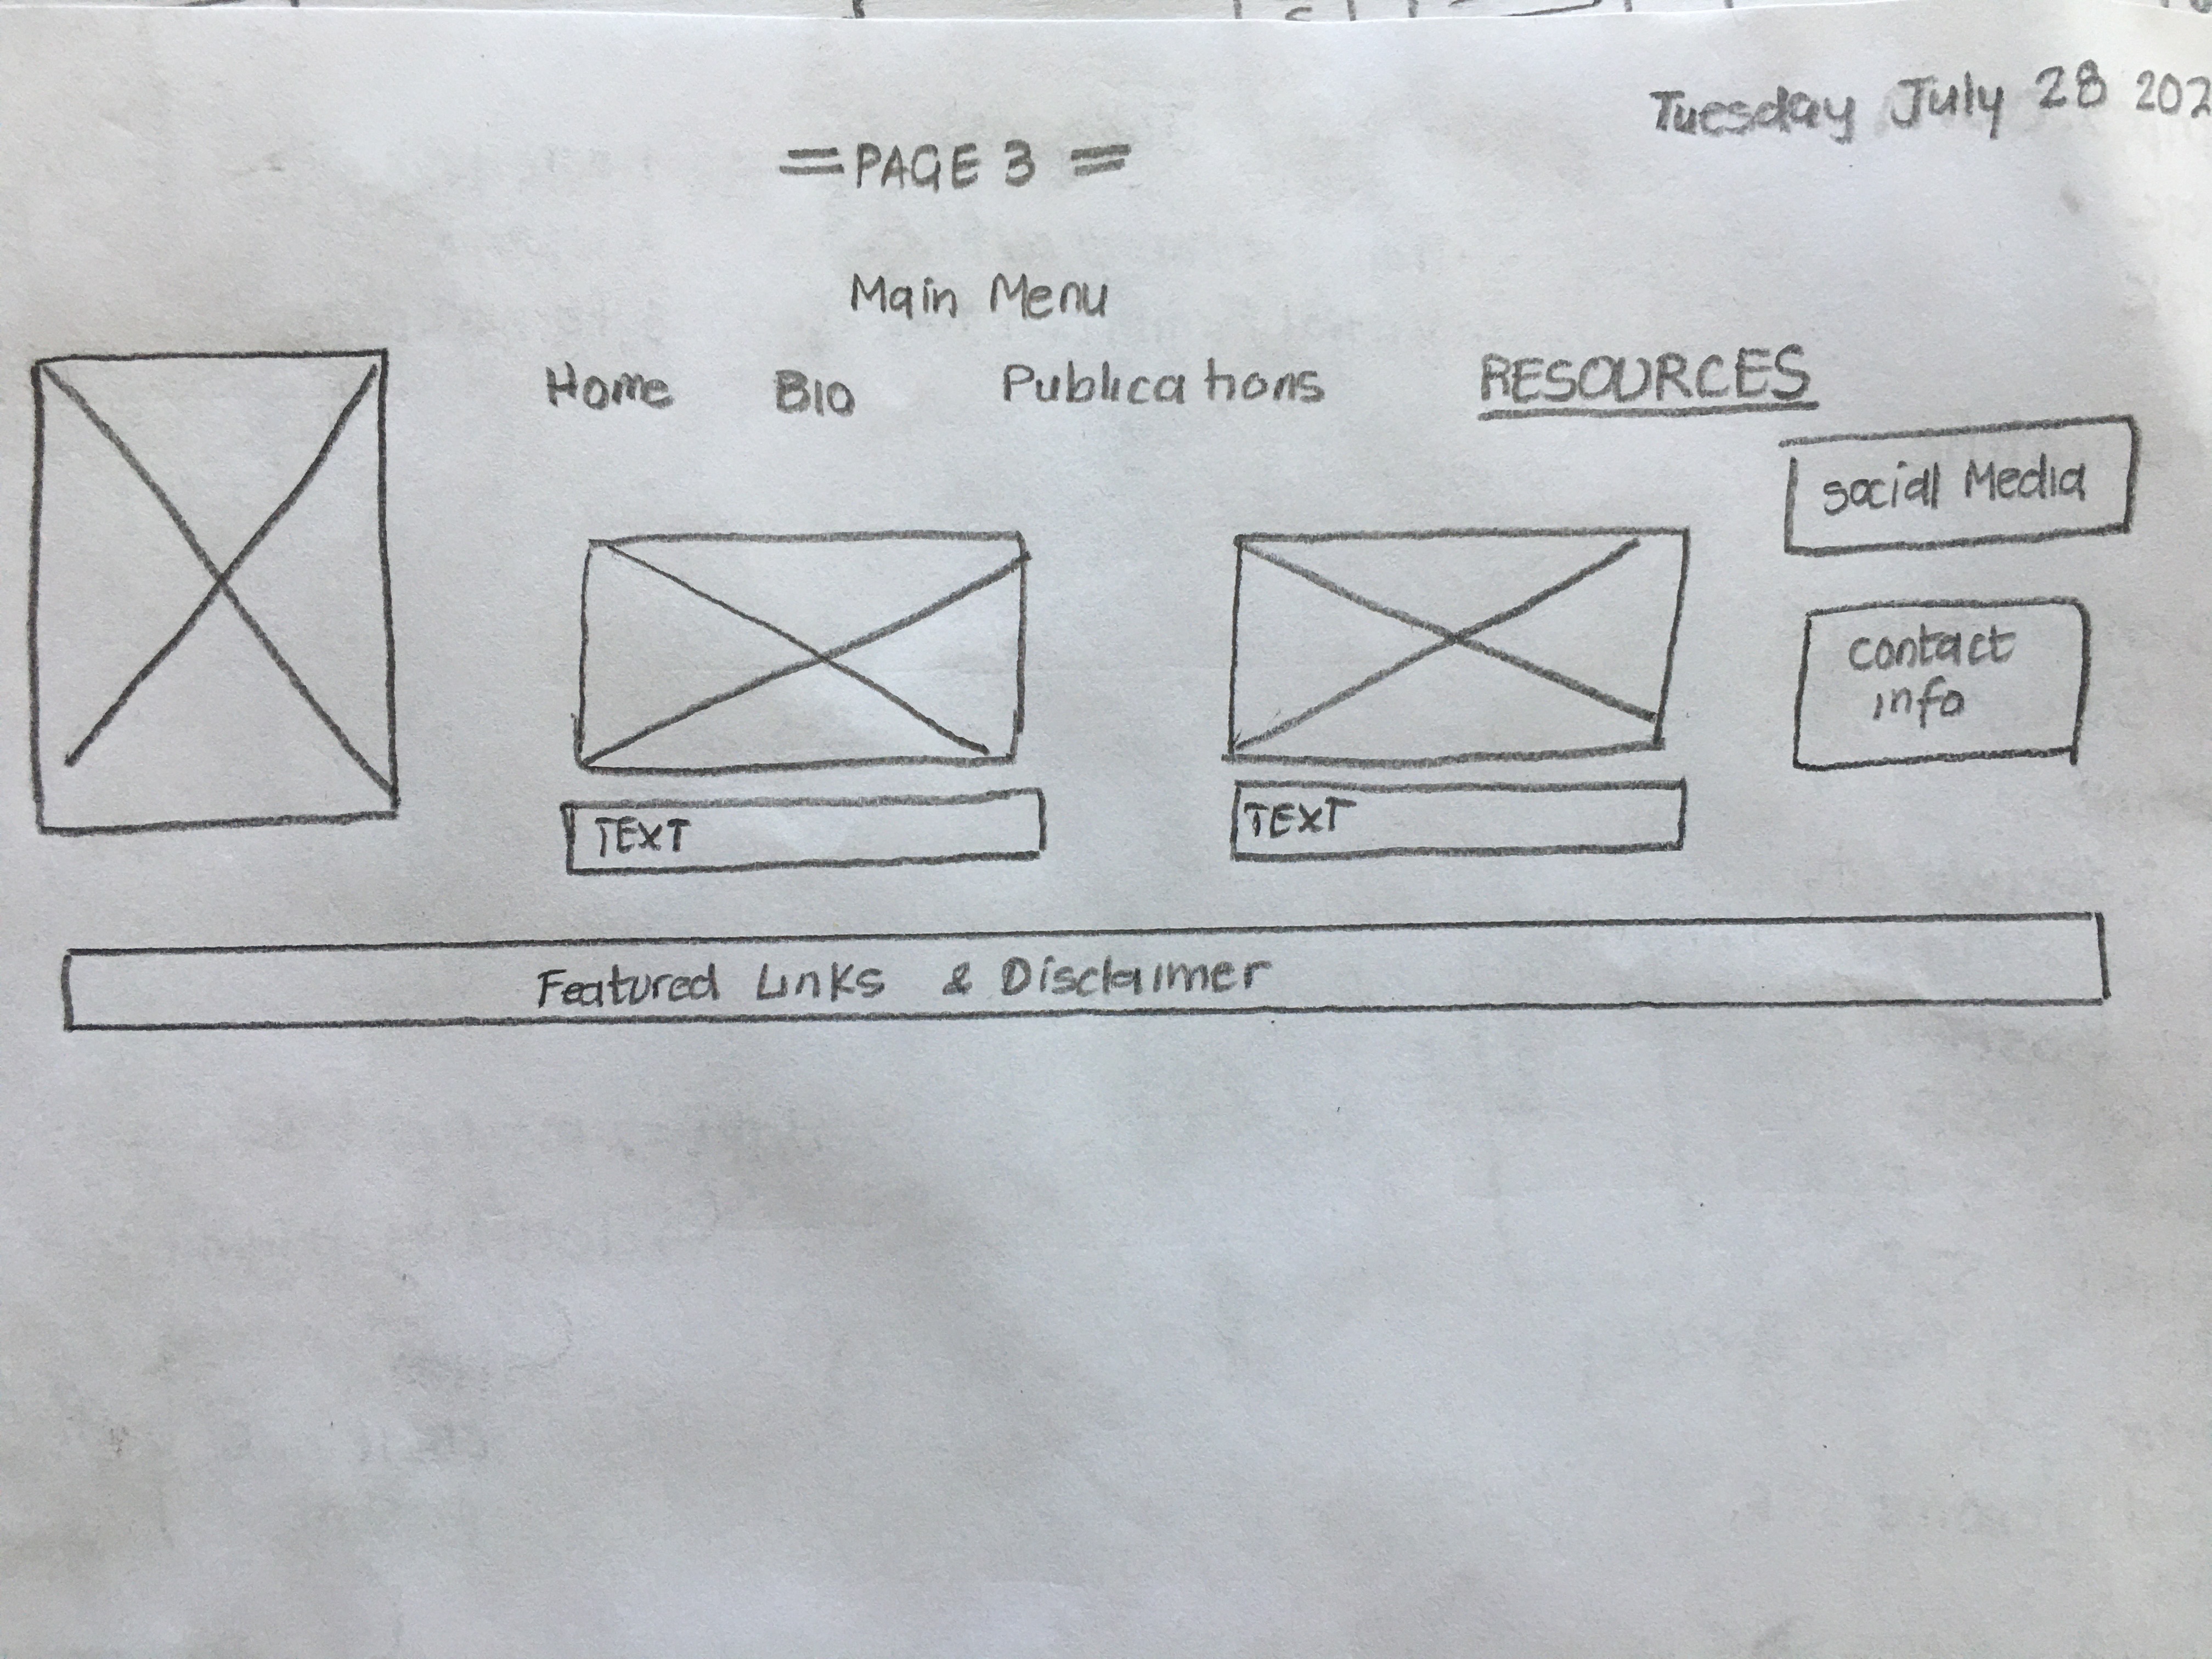 Tuesday July 28 202
= PAGE 3 =
Main Menu
Home Bio Publications RESOURCES
social Media
contact
info
TEXT TEXT
Featured Links & Disclaimer